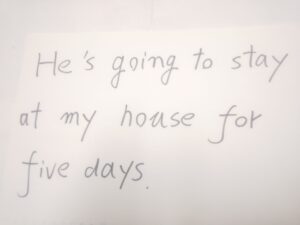 He's going to stay
at my house for
five days.